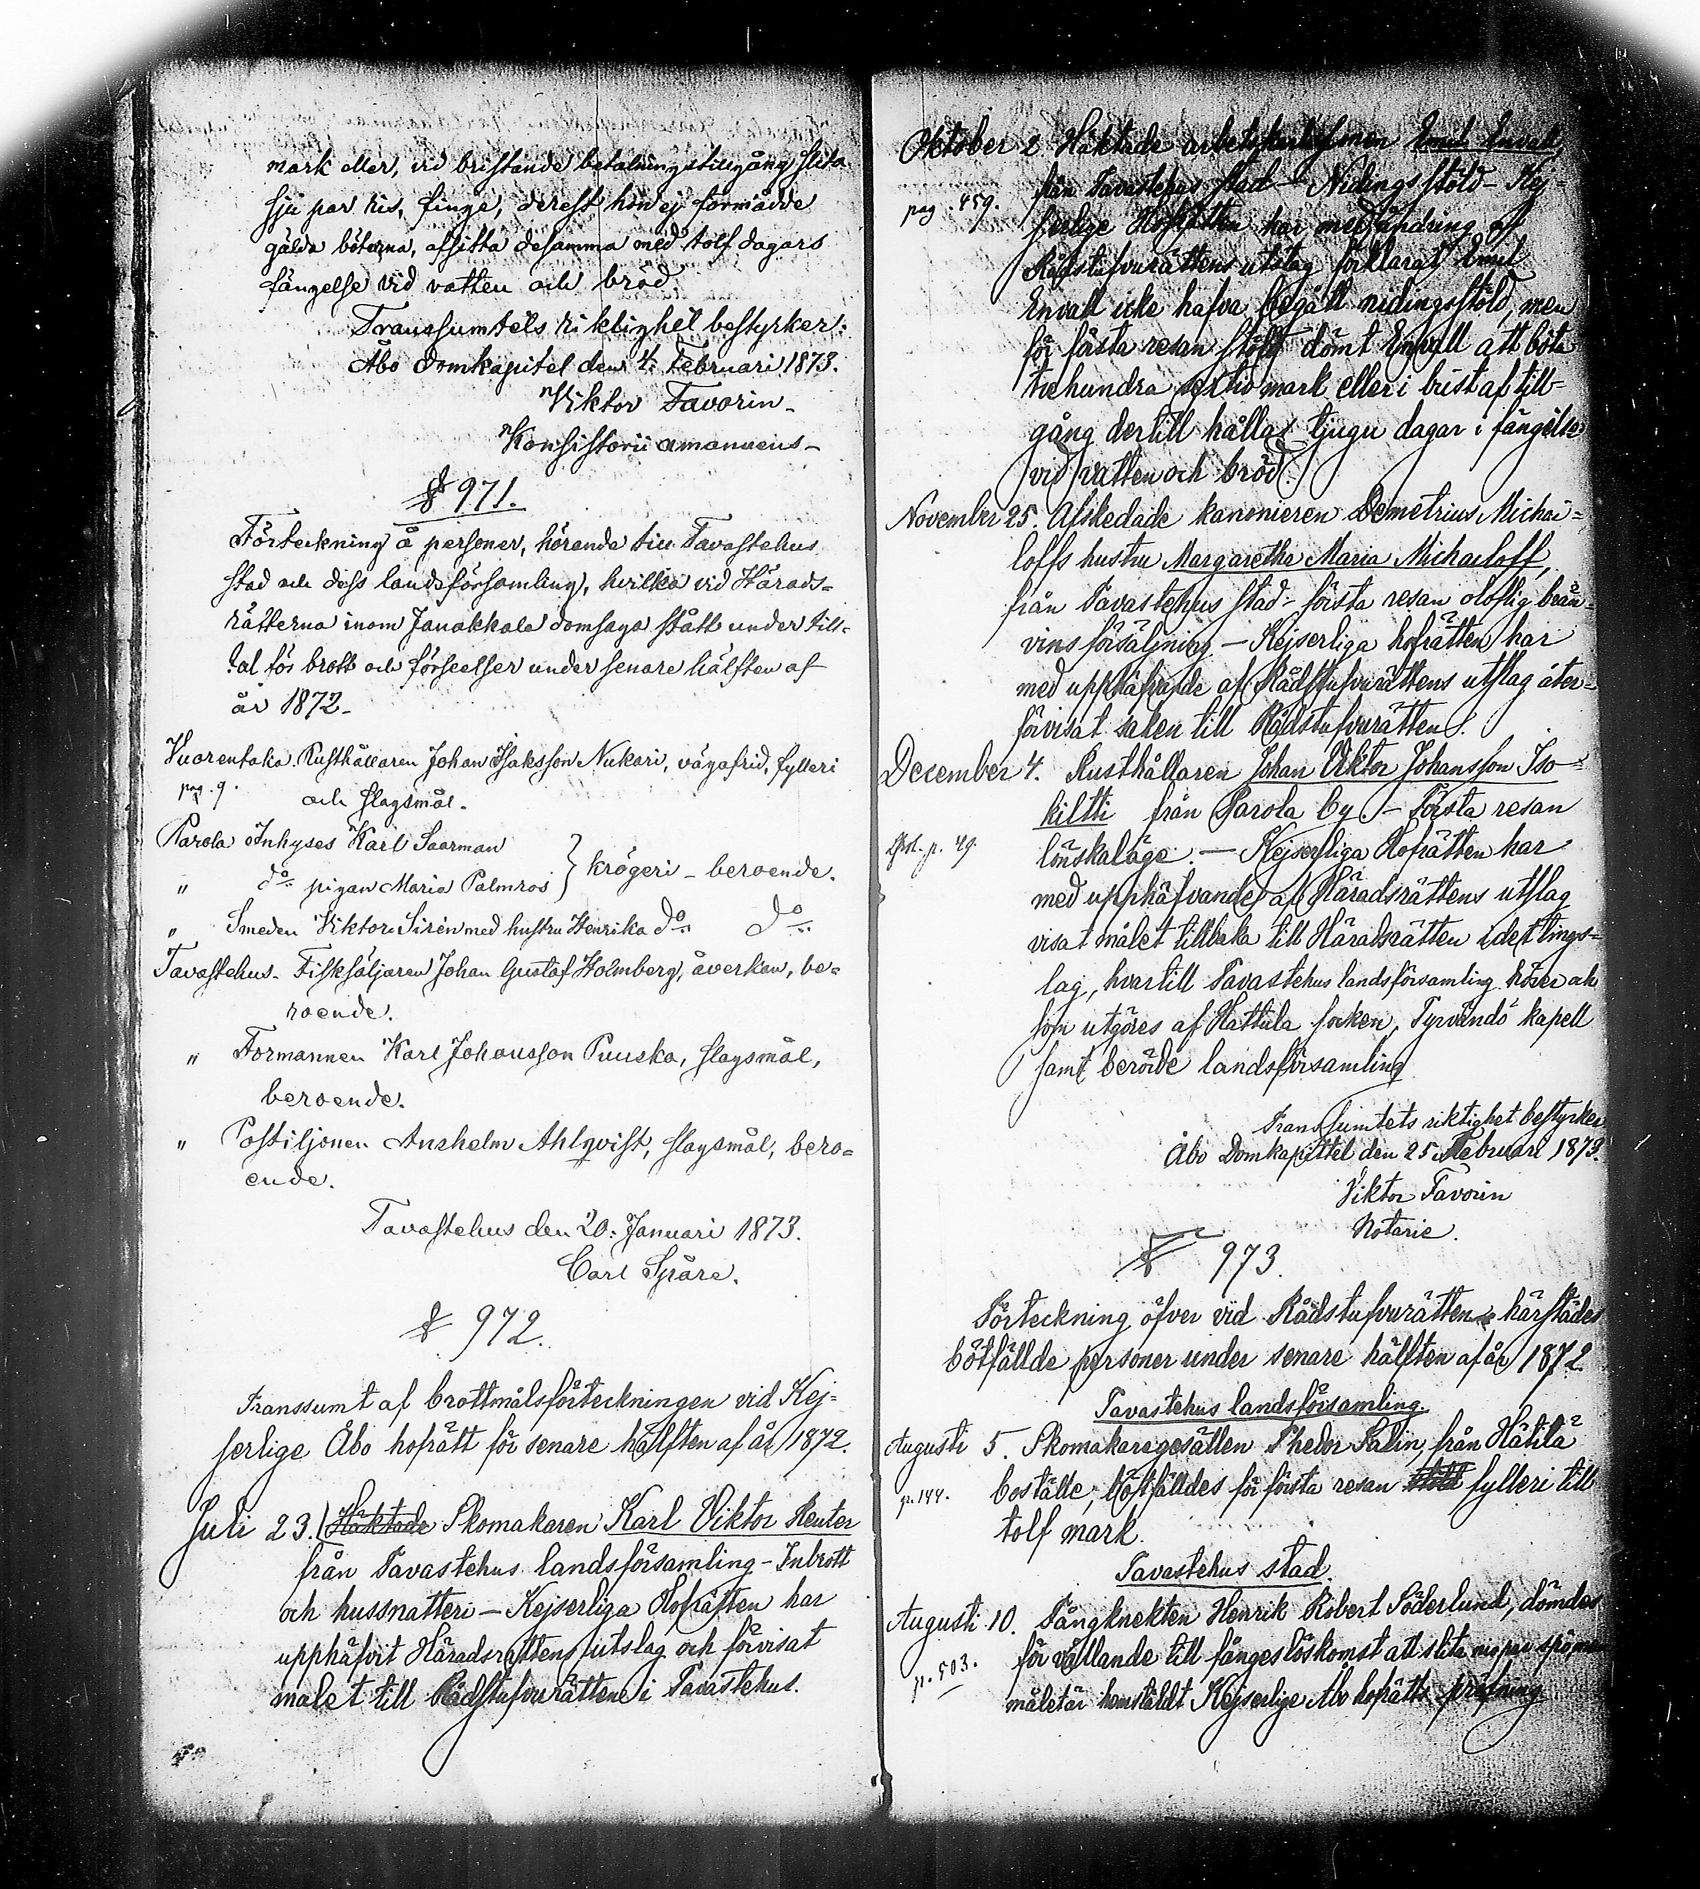 mark eller, vid bristande betalningstillgång slita
sju par ris, finge, derest hon ej förmådde
gälda böterna, afsitta desamma med tolf dagars
fängelse vid vatten och bröd.
Transsumtets riktighet bestyrker:
Åbo Domkapitel den 4. Februari 1873.
Viktor Favorin.
Konsistorii amanuens.
§ 971.
Förteckning å personer, hörande till Tavastehus
stad och dess landsförsamling, hvilka vid Härads-
rätterna inom Janakkala domsaga stått under till-
tal för brott och förseelser under senare hälften af
år 1872.
Vuorentaka Rusthållaren Johan Isaksson Nukari, vägafrid, fylleri
pag. 9. och slagsmål.
Parola Inhyses Karl Saarman
„ do pigan Maria Palmros } krögeri - beroende.
„ Smeden Viktor Sirén med hustru Henrika do do
Tavastehus. Fiskhäljaren Johan Gustaf Holmberg, åverkan, be-
roende.
„ Formannen Karl Johansson Puuska, slagsmål,
beroende.
„ Postiljonen Anshelm Ahlqvist, slagsmål, bero-
ende.
Tavastehus den 20. Januari 1873.
Carl Spåre.
§ 972.
Transsumt af brottmålsförteckningen vid Kej-
serlige Åbo hofrätt för senare hälften af år 1872.
Juli 23. Häktade Skomakaren Karl Viktor Renter
från Tavastehus landsförsamling - Inbrott
och hussnatteri - Kejserliga Hofrätten har
upphäfvit Häradsrättens utslag och förvisat
målet till Rådstufvurätten i Tavastehus.
Oktober 2. Häktade arbetskarlssonen Emil Envall,
från Tavastehus stad - Nidingsstöld - Kej-
pag. 459. serlige Hofrätten har med ändring af
Rådstufvurättens utslag förklarat Emil
Envall icke hafva begått nidingsstöld, men
för första resan stöld dömt Envall att böta
trehundra sextio mark eller i brist af till-
gång dertill hållas tjugu dagar i fängelse
vid vatten och bröd.
November 25. Afskedade kanonieren Demetrius Michai-
loffs hustru Margaretha Maria Michailoff,
från Tavastehus stad - första resan oloflig brän-
vinsförsäljning - Kejserliga hofrätten har
med upphäfvande af Rådstufvurättens utslag åter-
förvisat saken till Rådstufvurätten.
December 4. Rusthållaren Johan Viktor Johansson Iso-
kiltti från Parola by. - Första resan
p. 49. lönskaläge. - Kejserliga Hofrätten har
med upphäfvande af Häradsrättens utslag
visat målet tillbaka till Häradsrätten i det tings-
lag, hvartill Tavastehus landsförsamling hörer och
som utgöres af Hattula socken, Tyrvändö kapell
samt berörde landsförsamling
Transsumtets riktighet bestyrker
Åbo Domkapittel den 25 Februari 1873.
Viktor Favorin
Notarie.
§ 973.
Förteckning öfver vid Rådstufvurätten härstädes
bötfällde personer under senare hälften af år 1872
Tavastehus landsförsamling.
Augusti 5. Skomakaregesällen Thedor Salin, från Hätilä
p. 144. boställe, bötfälldes för första resan stöld fylleri till
tolf mark.
Tavastehus stad.
Augusti 10. Fångknekten Henrik Robert Söderlund, dömdes
p. 503. för vållande till fånges löskomst att slita nio par spö, men
målet är hemstäldt Kejserlige Åbo hofrätts pröfning